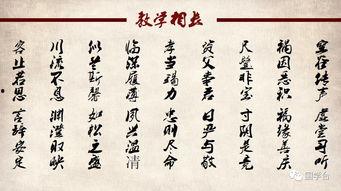 教学相长
空谷传声 虚堂习听
祸因恶积 福缘善庆
尺璧非宝 寸阴是竞
资父事君 曰严与敬
孝当竭力 忠则尽命
临深履薄 夙兴温凊
似兰斯馨 如松之盛
川流不息 渊澄取映
容止若思 言辞安定
国学台